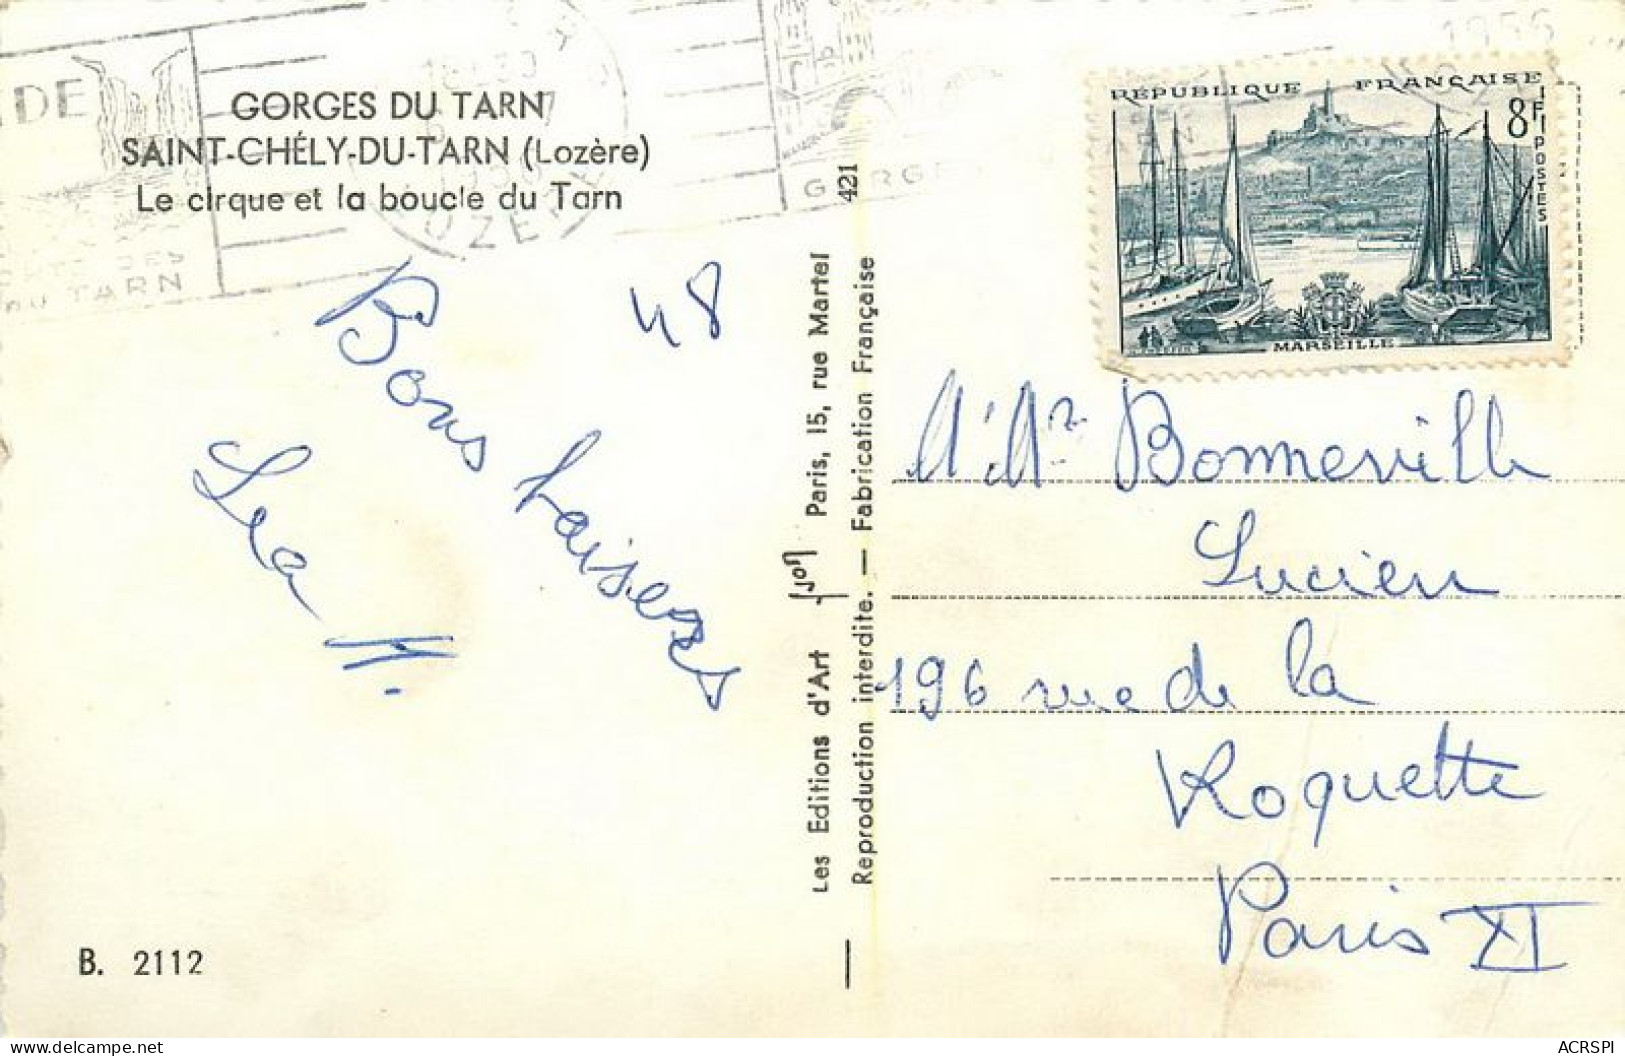 GORGES DU TARN
SAINT-CHÉLY-DU-TARN (Lozère)
Le cirque et la boucle du Tarn
DE
DU TARN
GORGE
1956
RÉPUBLIQUE FRANÇAISE
8F
POSTES
MARSEILLE
48
Bons baisers
Lea
B. 2112
Les Editions d'Art Yvon Paris, 15, rue Martel
Reproduction interdite. — Fabrication Française
421
M. Mr Bonneville
Lucien
196 rue de la
Roquette
Paris XI
ACRSPI